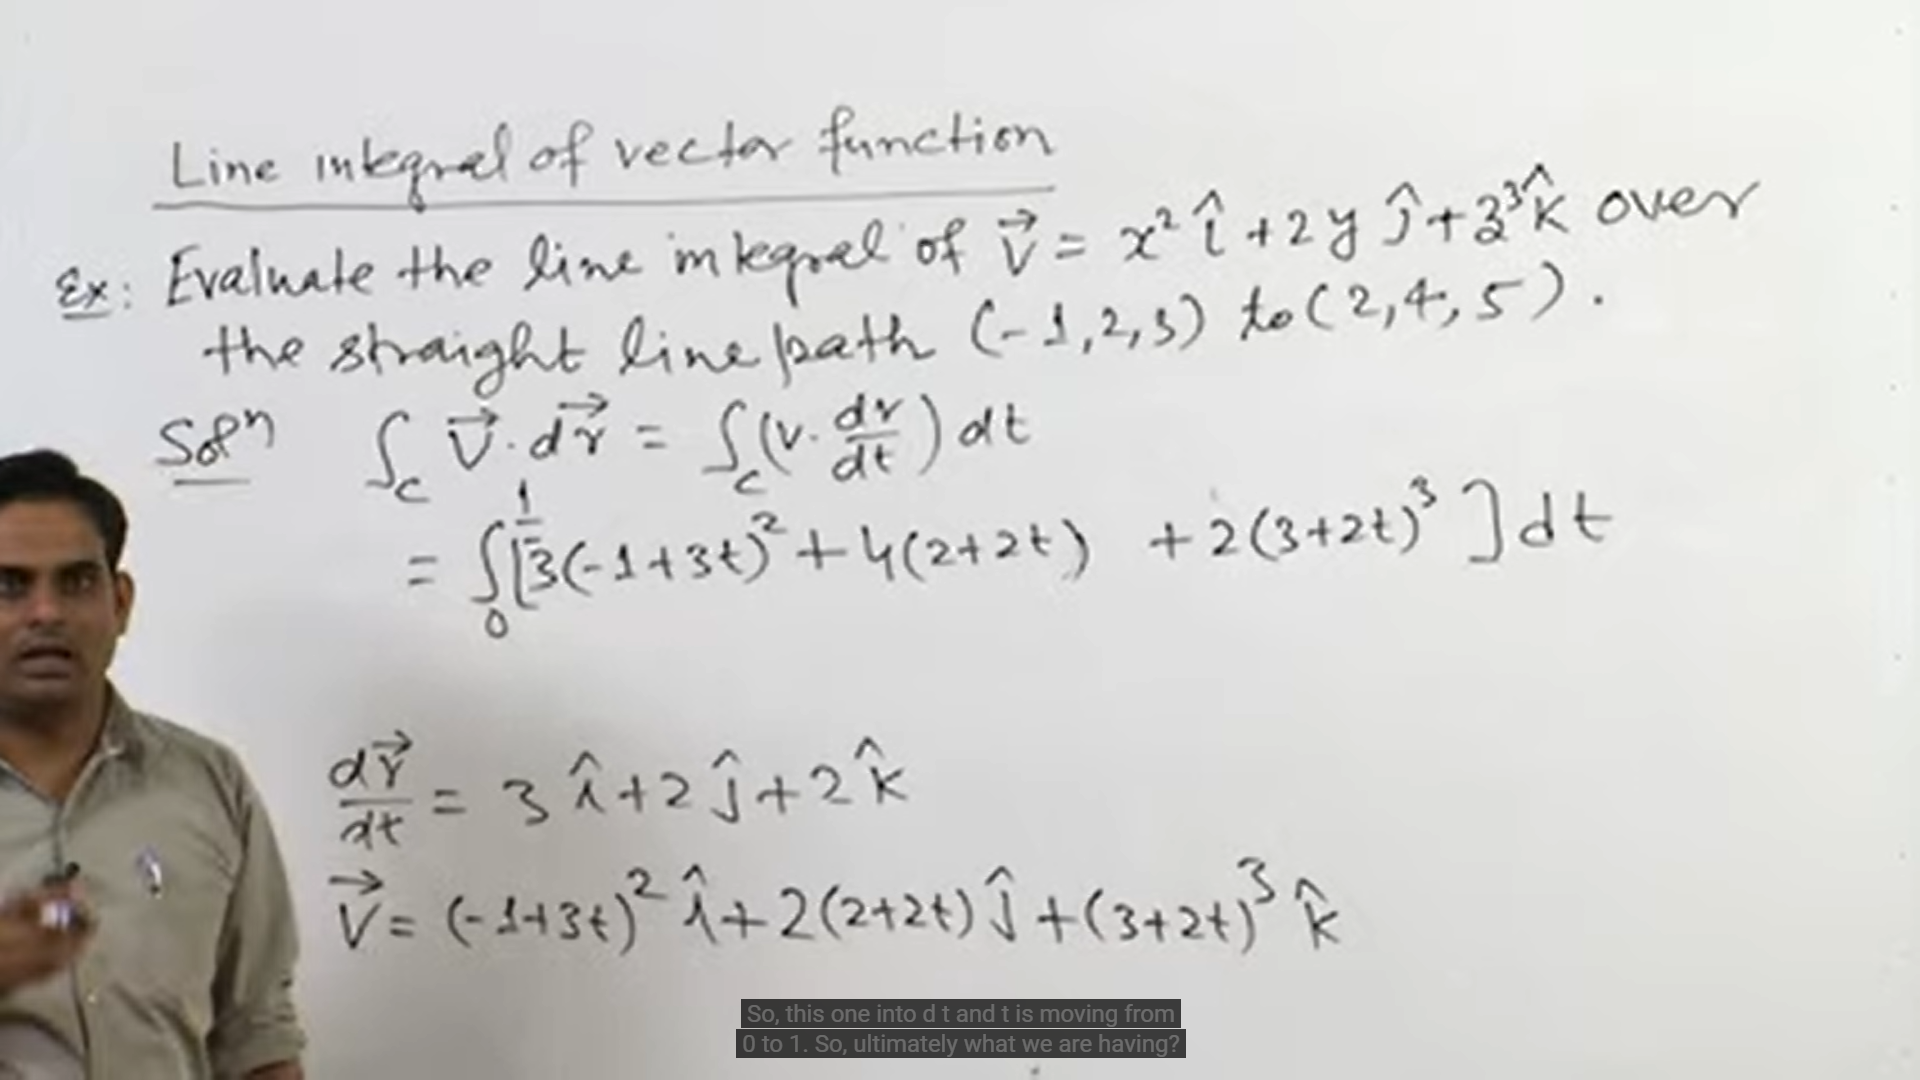 Line integral of vector function
Ex: Evaluate the line integral of V⃗ = x² î + 2y ĵ + z³ k̂ over
the straight line path (-1,2,3) to (2,4,5).
Solⁿ ∫_C V⃗ · dr⃗ = ∫_C (V · dr/dt) dt
= ∫₀¹ [3(-1+3t)² + 4(2+2t) + 2(3+2t)³] dt
dr⃗/dt = 3 î + 2 ĵ + 2 k̂
V⃗ = (-1+3t)² î + 2(2+2t) ĵ + (3+2t)³ k̂
So, this one into d t and t is moving from
0 to 1. So, ultimately what we are having?